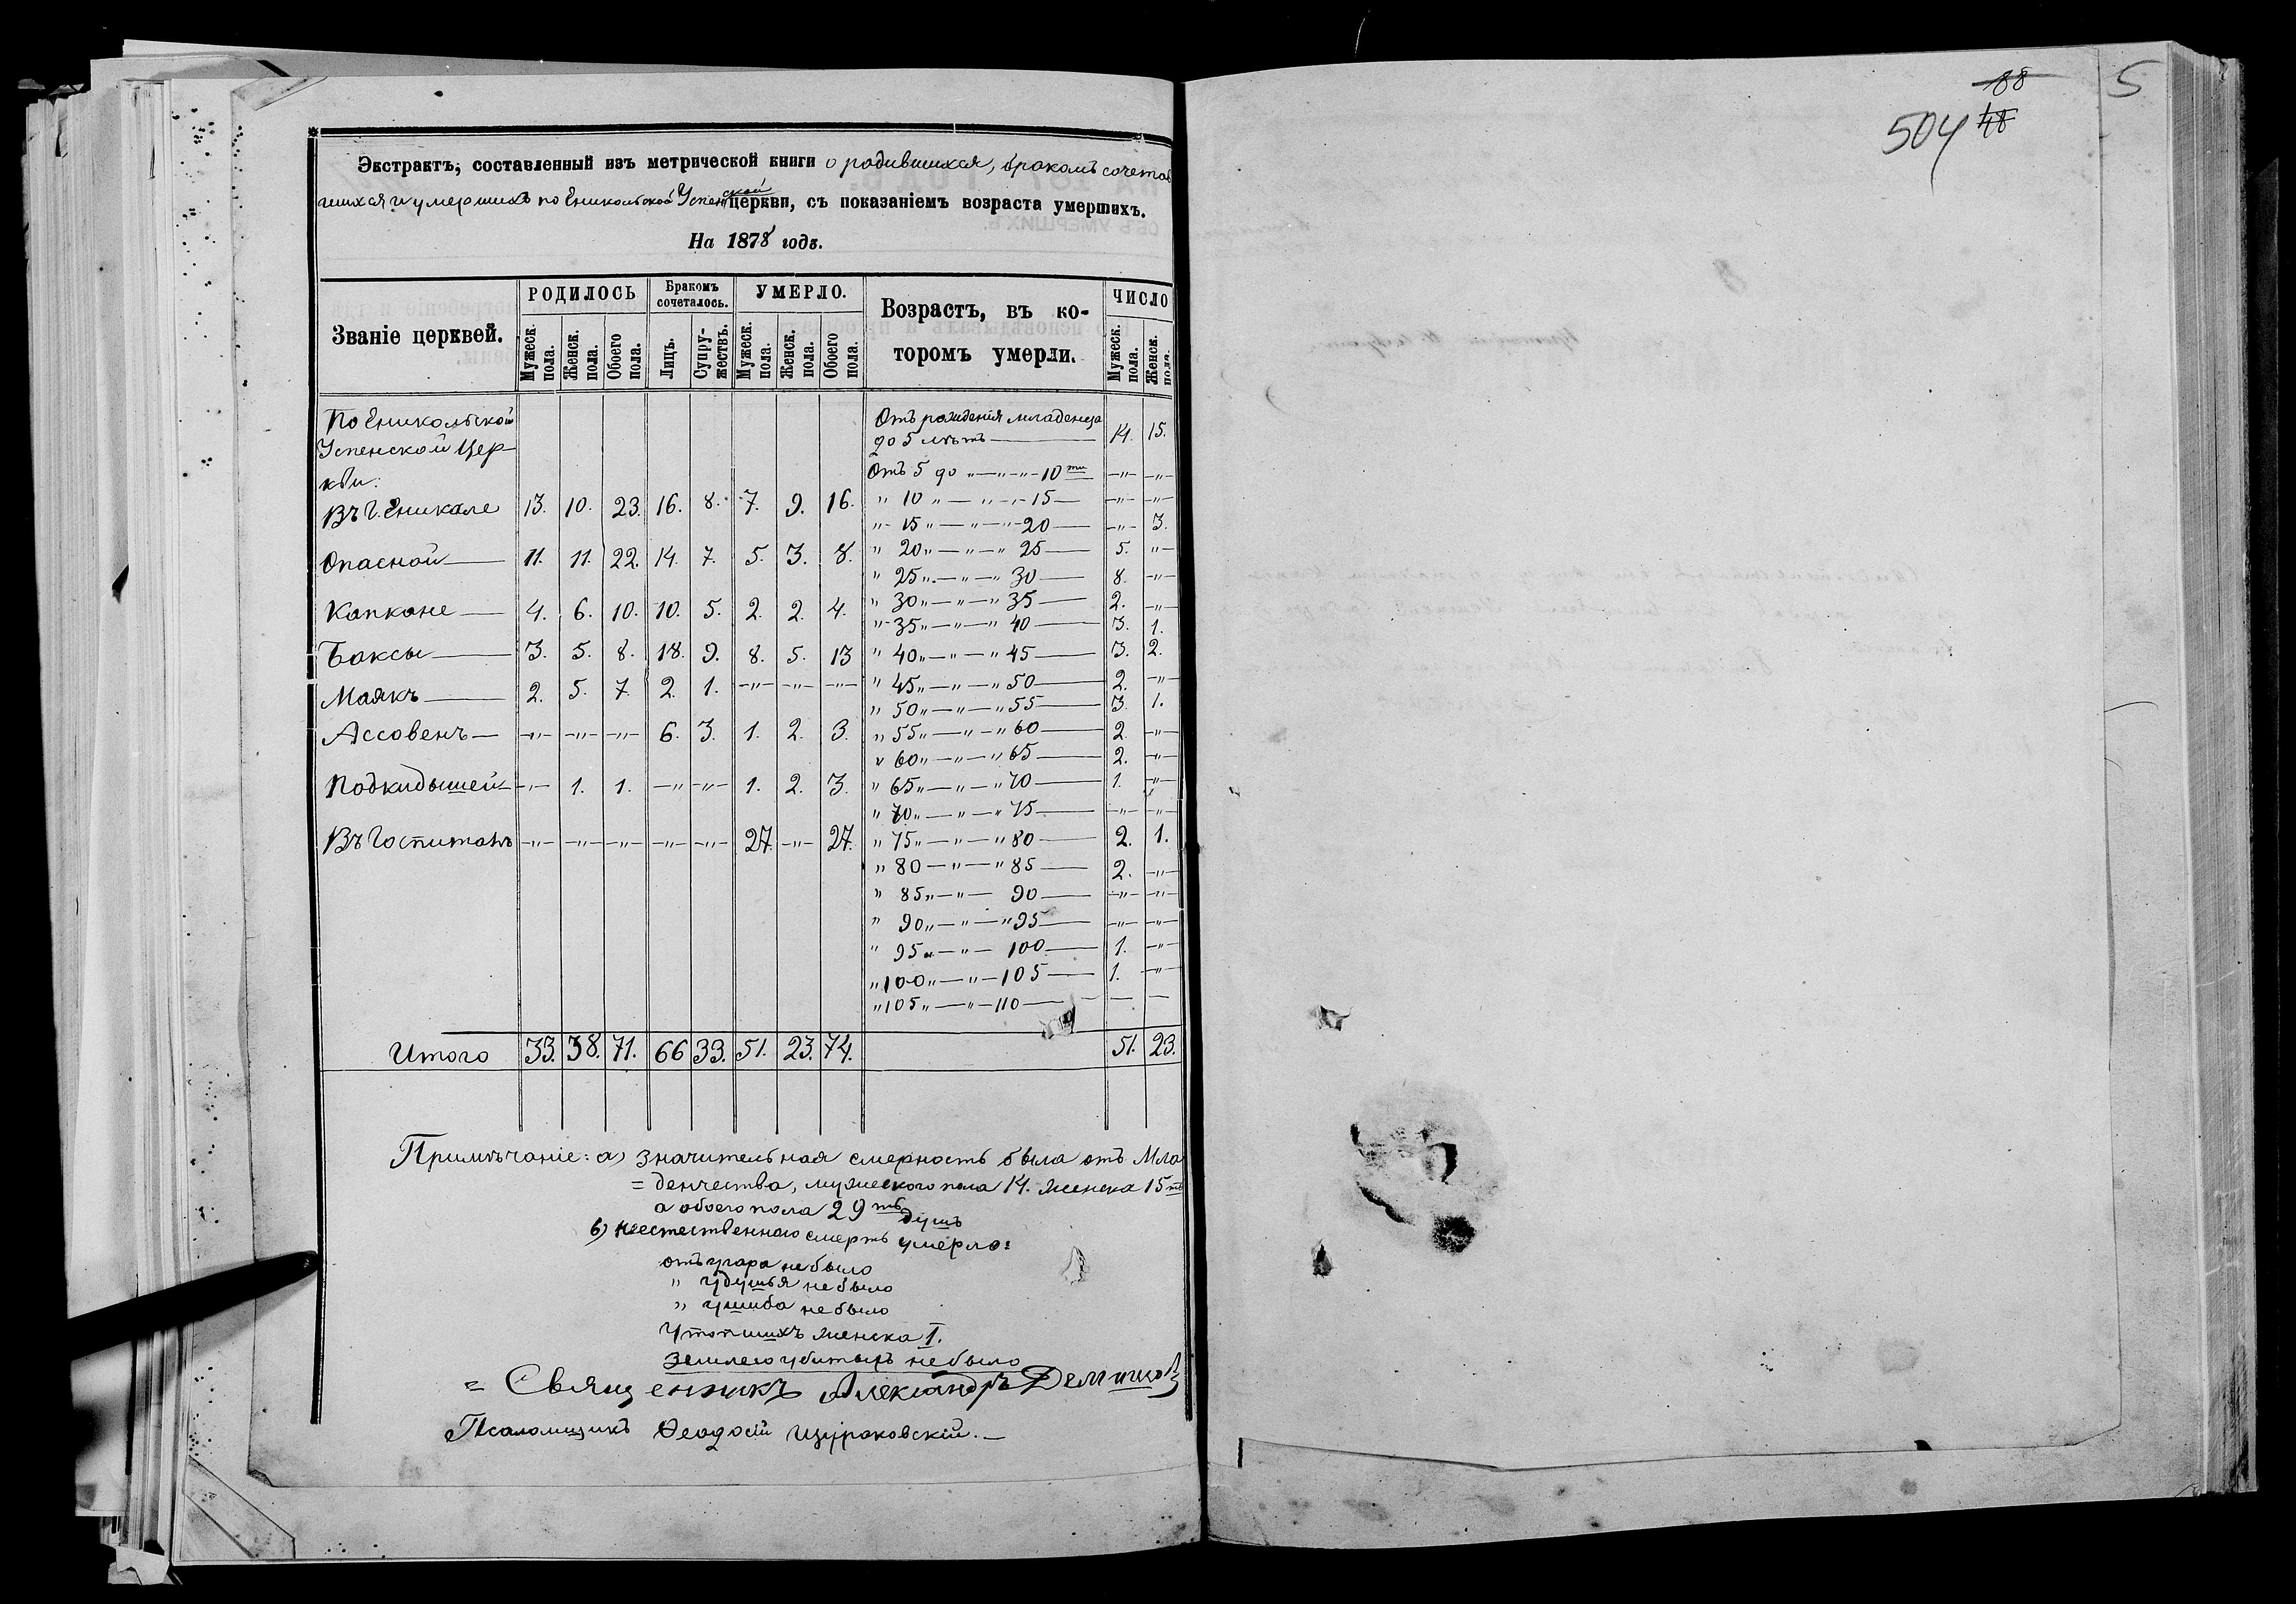 Экстрактъ, составленный изъ метрической книги о родившихся, бракомъ сочетав
шихся и умершихъ по Еникольской Успенской церкви, съ показаніемъ возраста умершихъ.
На 1878 годъ.
Званіе церквей. РОДИЛОСЬ Бракомъ сочеталось. УМЕРЛО. Возрастъ, въ которомъ умерли. ЧИСЛО
Мужеск. пола. Женск. пола. Обоего пола. Лицъ. Супружествъ. Мужеск. пола. Женск. пола. Обоего пола. Мужеск. пола. Женск. пола.
По Еникольской
Успенской Цер-
кви:
Въ Г. Еникале 13. 10. 23. 16. 8. 7. 9. 16.
Опасной 11. 11. 22. 14. 7. 5. 3. 8.
Капкане 4. 6. 10. 10. 5. 2. 2. 4.
Баксы 3. 5. 8. 18. 9. 8. 5. 13
Маякъ 2. 5. 7. 2. 1. -"- -"- -"-
Ассовенъ -"- -"- -"- 6. 3. 1. 2. 3.
Подкидышей -"- 1. 1. -"- -"- 1. 2. 3.
Въ Госпитанъ -"- -"- -"- -"- -"- 27. -"- 27.
Отъ рожденія младенца
до 5 лѣтъ — 14. 15.
Отъ 5 до " — " — " — 10ти -"- -"-
" 10 " — " — 15 -"- -"-
" 15 " — " — 20 -"- 3.
" 20 " — " — " 25 5. "
" 25 " — " — " 30 8. -"-
" 30 " — " — " 35 2. -"-
" 35 " — " — " 40 3. 1.
" 40 " — " — " 45 3. 2.
" 45 " — " — " 50 2. -"-
" 50 " — " — " 55 3. 1.
" 55 " — " — " 60 2. -"-
" 60 " — " — " 65 2. -"-
" 65 " — " — " 70 1. -"-
" 70 " — " — " 75 -"- -"-
" 75 " — " — " 80 2. 1.
" 80 — " — " 85 2. -"-
" 85 " — " — 90 -"- -"-
" 90 " — " — " 95 -"- -"-
" 95 " — " — 100 1. -"-
" 100 " — " — 105 1. -"-
" 105 " — " — 110 — —
Итого 33. 38. 71. 66 33. 51. 23. 74. 51. 23.
Примѣчаніе: а) значительная смерность была отъ Мла
= денчества, мужеского пола 14. женска 15ть
а обоего пола 29ть душъ
б) неестественною смерть умерло:
отъ угара небыло
" удушья небыло
" ушиба небыло
Утопшихъ женска 1.
Землею убитыхъ небыло
= Священникъ Александръ
Псаломщикъ Ѳеодосій
88
504 48
5